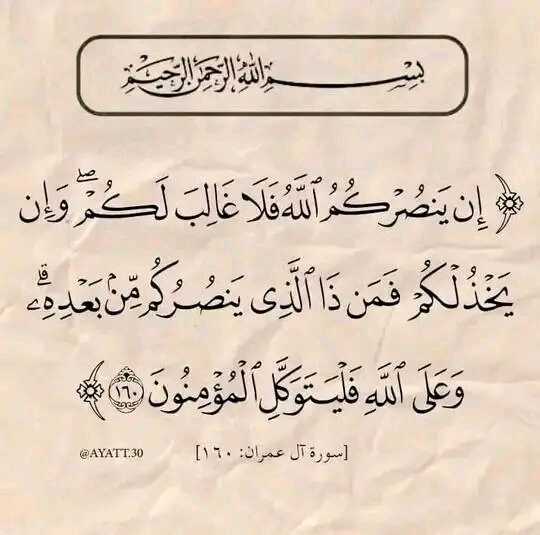 بِسْمِ اللهِ الرَّحْمٰنِ الرَّحِيْمِ
﴿ إِن يَنصُرْكُمُ ٱللَّهُ فَلَا غَالِبَ لَكُمْۖ وَإِن
يَخْذُلْكُمْ فَمَن ذَا ٱلَّذِى يَنصُرُكُم مِّنۢ بَعْدِهِۦۗ
وَعَلَى ٱللَّهِ فَلْيَتَوَكَّلِ ٱلْمُؤْمِنُونَ ١٦٠ ﴾
[سورة آل عمران: ١٦٠] @AYATT.30